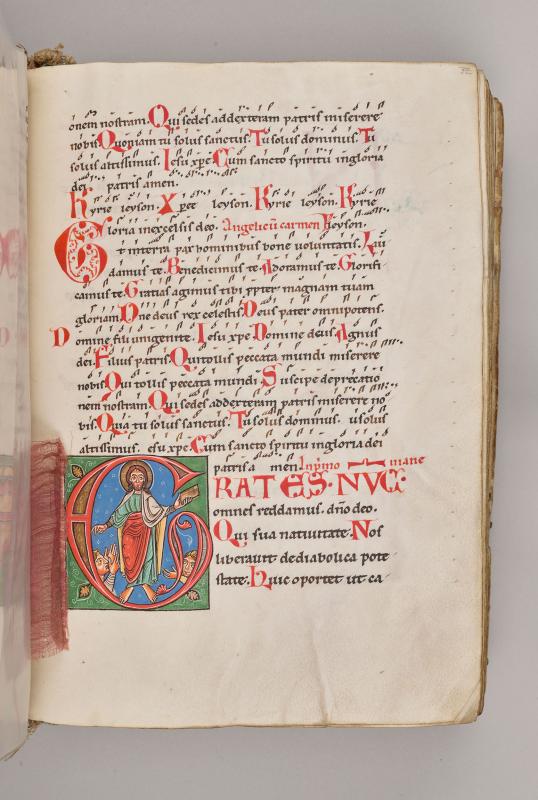 onem nostram. Qui sedes ad dexteram patris miserere
nobis. Quoniam tu solus sanctus. Tu solus dominus. Tu
solus altissimus. Iesu xpe. Cum sancto spiritu in gloria
dei patris amen.
Kyrie leyson. Xpe leyson. Kyrie leyson. Kyrie
Gloria in excelsis deo. Angelicū carmen leyson.
Et in terra pax hominibus bone voluntatis. Lau
damus te. Benedicimus te. Adoramus te. Glorifi
camus te. Gratias agimus tibi ppter magnam tuam
gloriam. Dne deus rex celestis. Deus pater omnipotens.
Domine fili unigenite. Iesu xpe. Domine deus. Agnus
dei. Filius patris. Qui tollis peccata mundi miserere
nobis. Qui tollis peccata mundi. Suscipe deprecatio
nem nostram. Qui sedes ad dexteram patris miserere no
bis. Quia tu solus sanctus. Tu solus dominus. u solus
altissimus. esu xpe. Cum sancto spiritu in gloria dei
patris a men. In pimo mane
GRATES. NVC.
omnes reddamus. dño deo.
Qui sua nativitate. Nos
liberavit de diabolica pote
state. Huic oportet ut ca